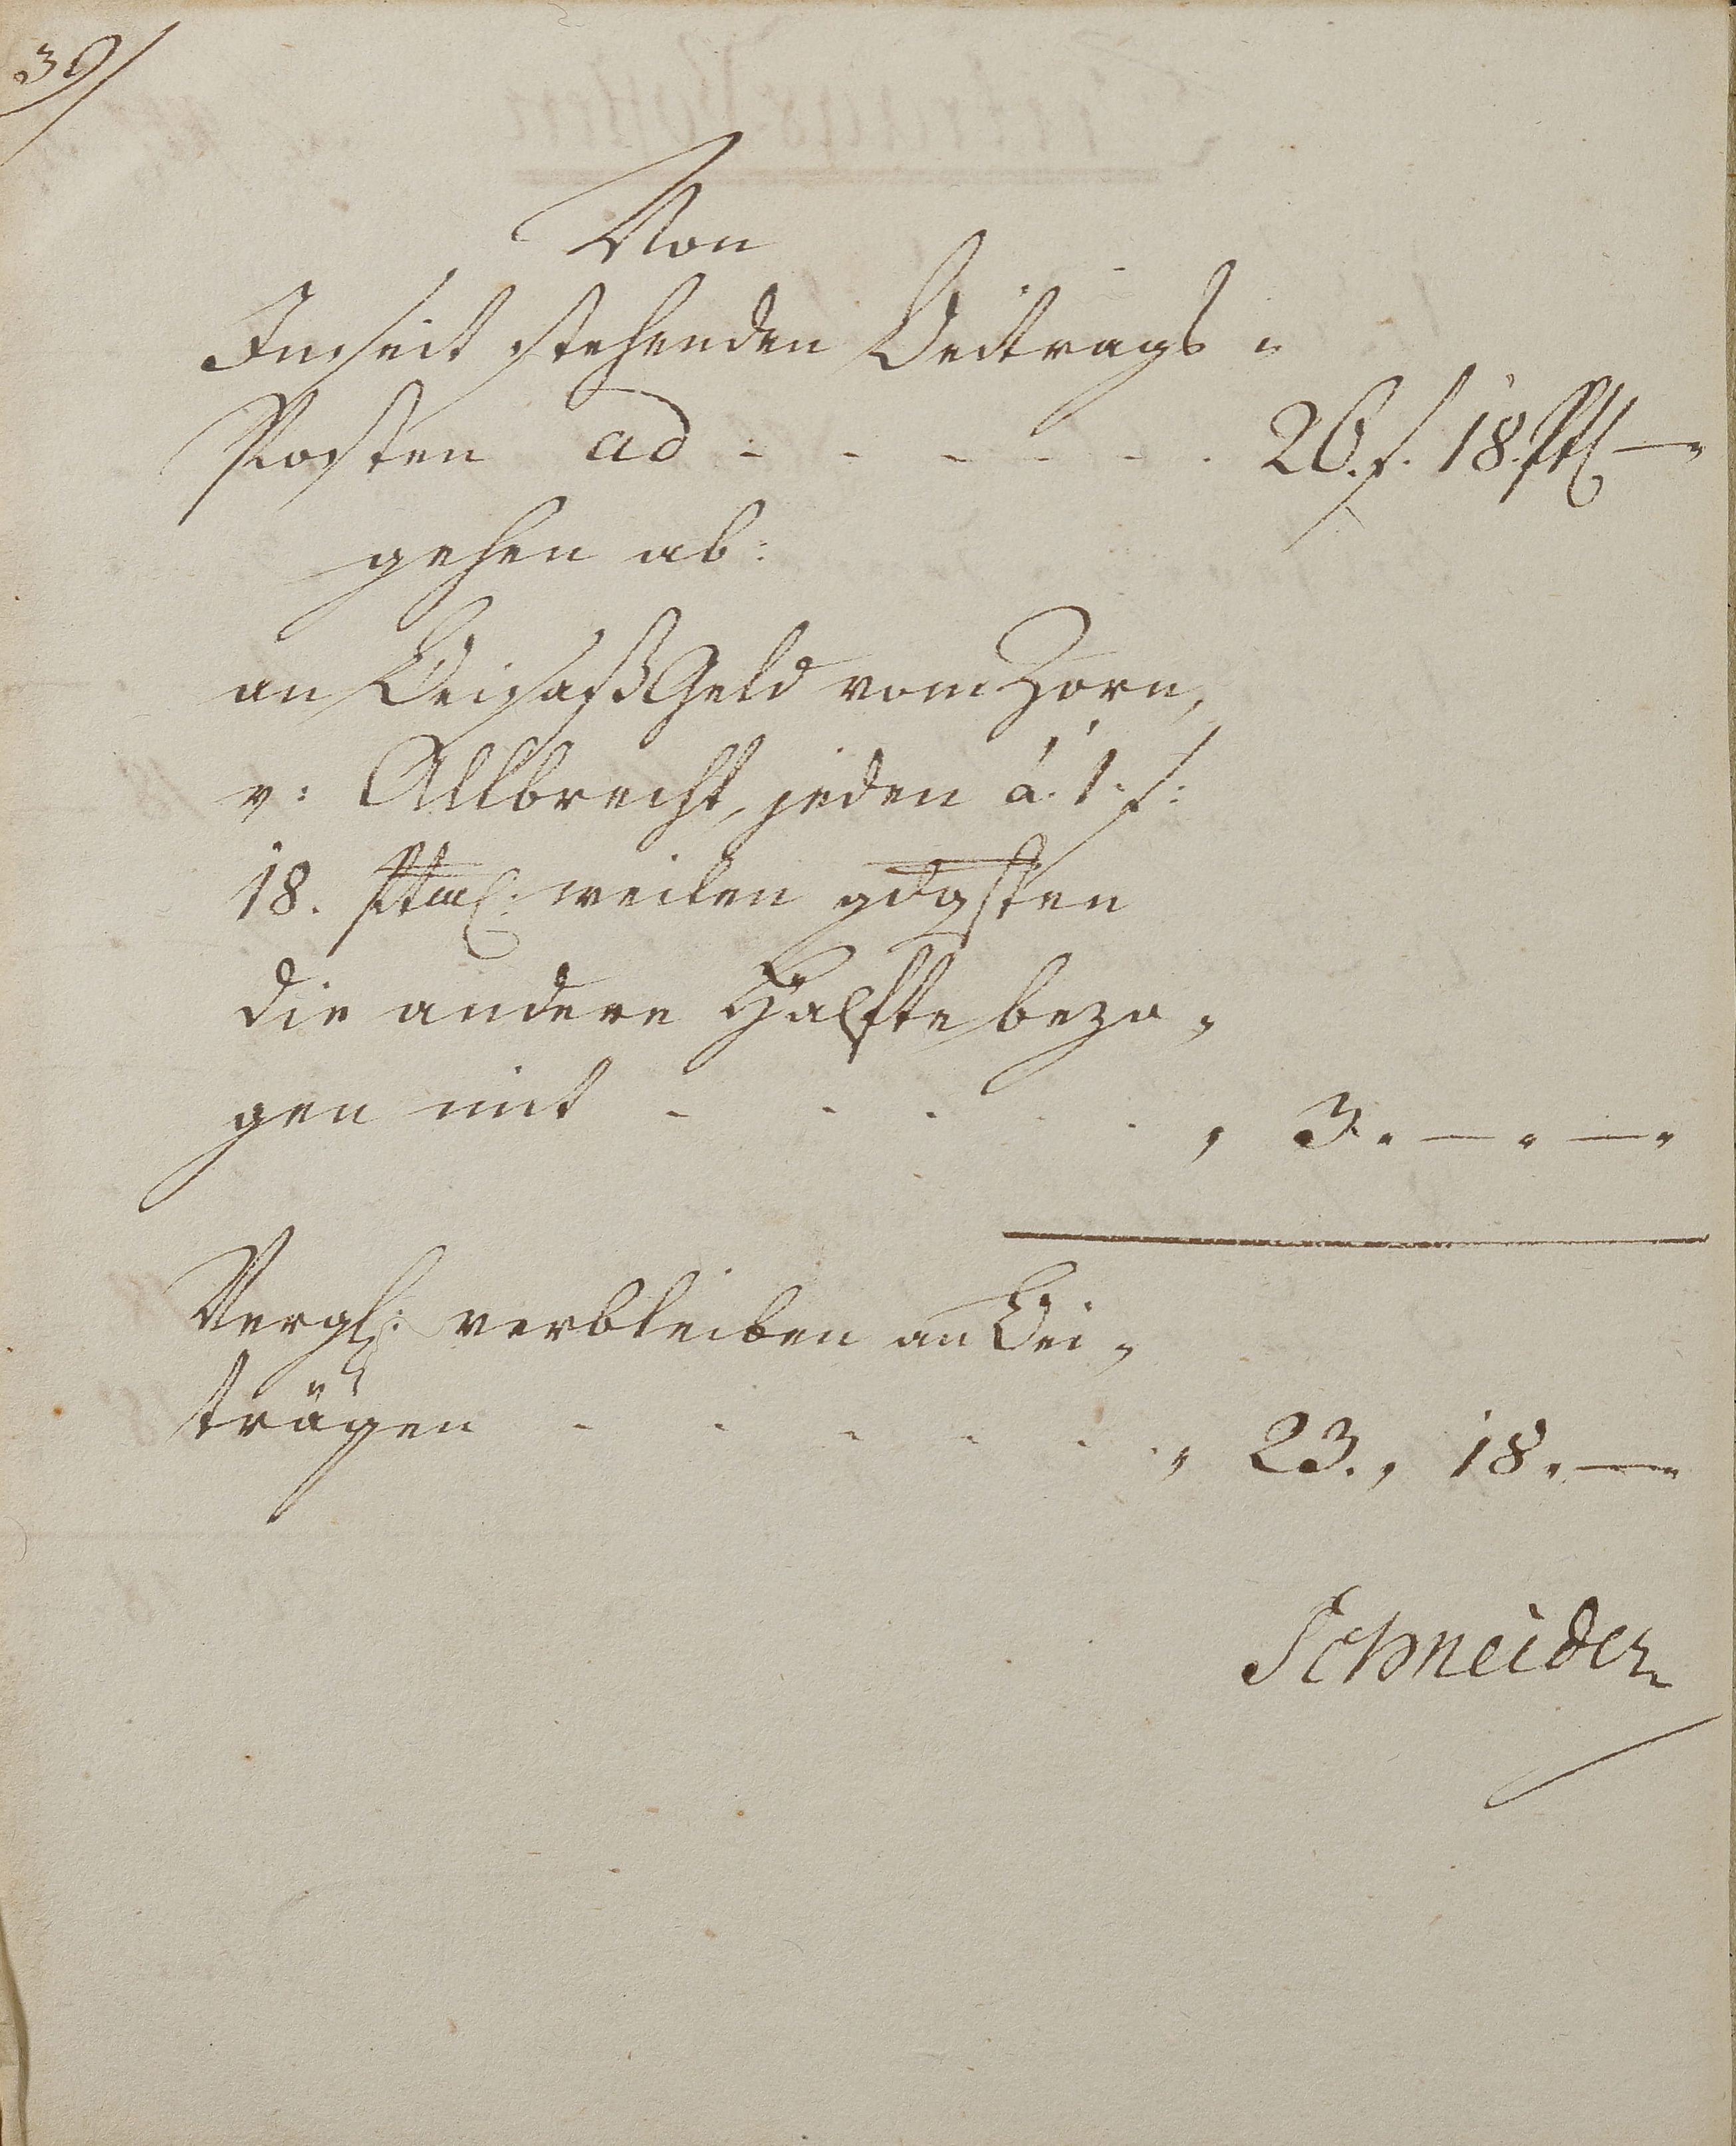 39
Von
Inseit stehenden Beitrags-
Posten ad - - - - - 26. f. 18. —
gehen ab:
an Beisaß Geld vom Horn,
v: Allbrecht, jeden á. 1. f:
18. weilen gdgsten
die andere Hälfte bezo-
gen mit - - - - , 3. — . — .
verbleiben an Bei-
trägen - - - - - - , 23. , 18. —
Schneider